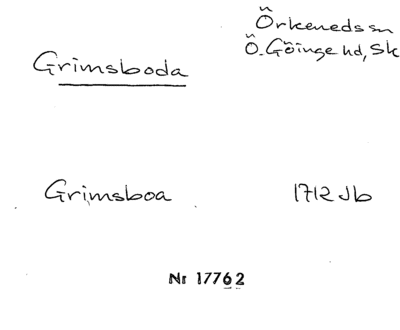 Örkeneds sn
Ö. Göinge hd, Sk
Grimsboda
Grimsboa 1712 Jb
Nr 17762